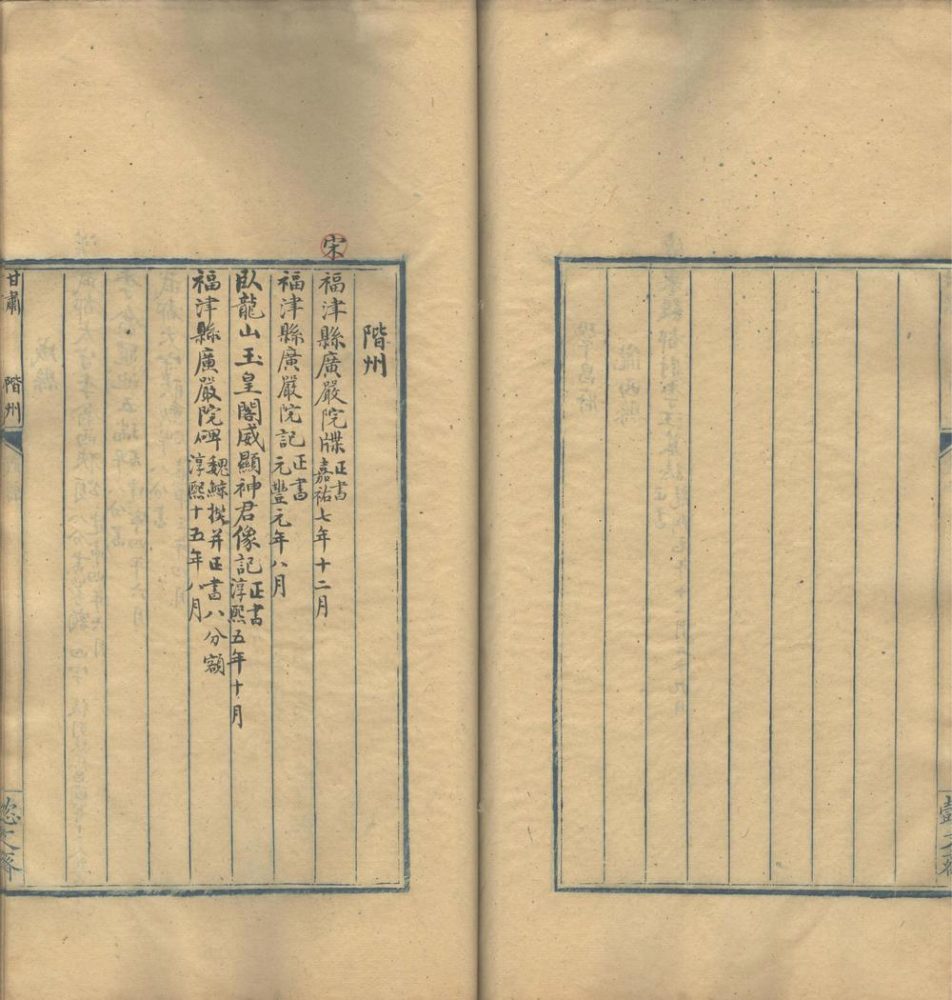 階州
宋
福津縣廣嚴院牒正書嘉祐七年十二月
福津縣廣嚴院記正書元豐元年八月
臥龍山玉皇閣威顯神君像記正書淳熙五年十月
福津縣廣嚴院碑魏鯨撰并正書八分額淳熙十五年八月
甘肅 階州